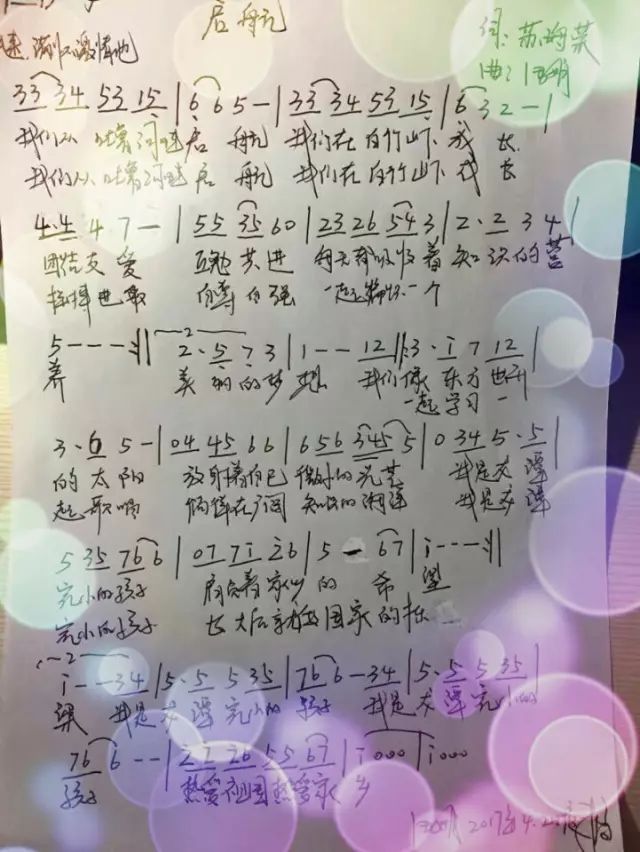 启航
词：苏海荣
曲：
33 34 53 15 | 6 6 5 - | 33 34 53 15 | 6 3 2 - |
我们从 河畔启 航 我们在白竹山下 成 长
我们从 河畔启 航 我们在白竹山下 成 长
4·4 4 7 - | 55 35 60 | 23 26 54 3 | 2·2 3 4 |
团结友爱 互勉共进 每天都吸收着知识的营
进取 自尊自强 一起 一个
5 - - - :‖ 2·5 7 3 | 1 - - 12 ‖: 3·1 7 12 |
养 美丽的梦想 我们像东方
一起学习一
3·6 5 - | 04 45 66 | 656 345 5 | 0 34 5·5 |
的太阳 放射着自己 的光芒 我是龙潭
起歌唱 徜徉在 知识的海洋 我是龙潭
5 35 76 6 | 07 71 26 | 5 - 67 | 1 - - - :‖
完小的孩子 肩负着家乡的 希望
完小的孩子 长大后 国家的
1 - - 34 | 5·5 5 35 | 76 6 - 34 | 5·5 5 35 |
梁 我是龙潭完小的孩子 我是龙潭完小的
76 6 - - | 22 26 55 67 | 1000 | 1000
孩子 热爱祖国热爱家乡
2017年4.2